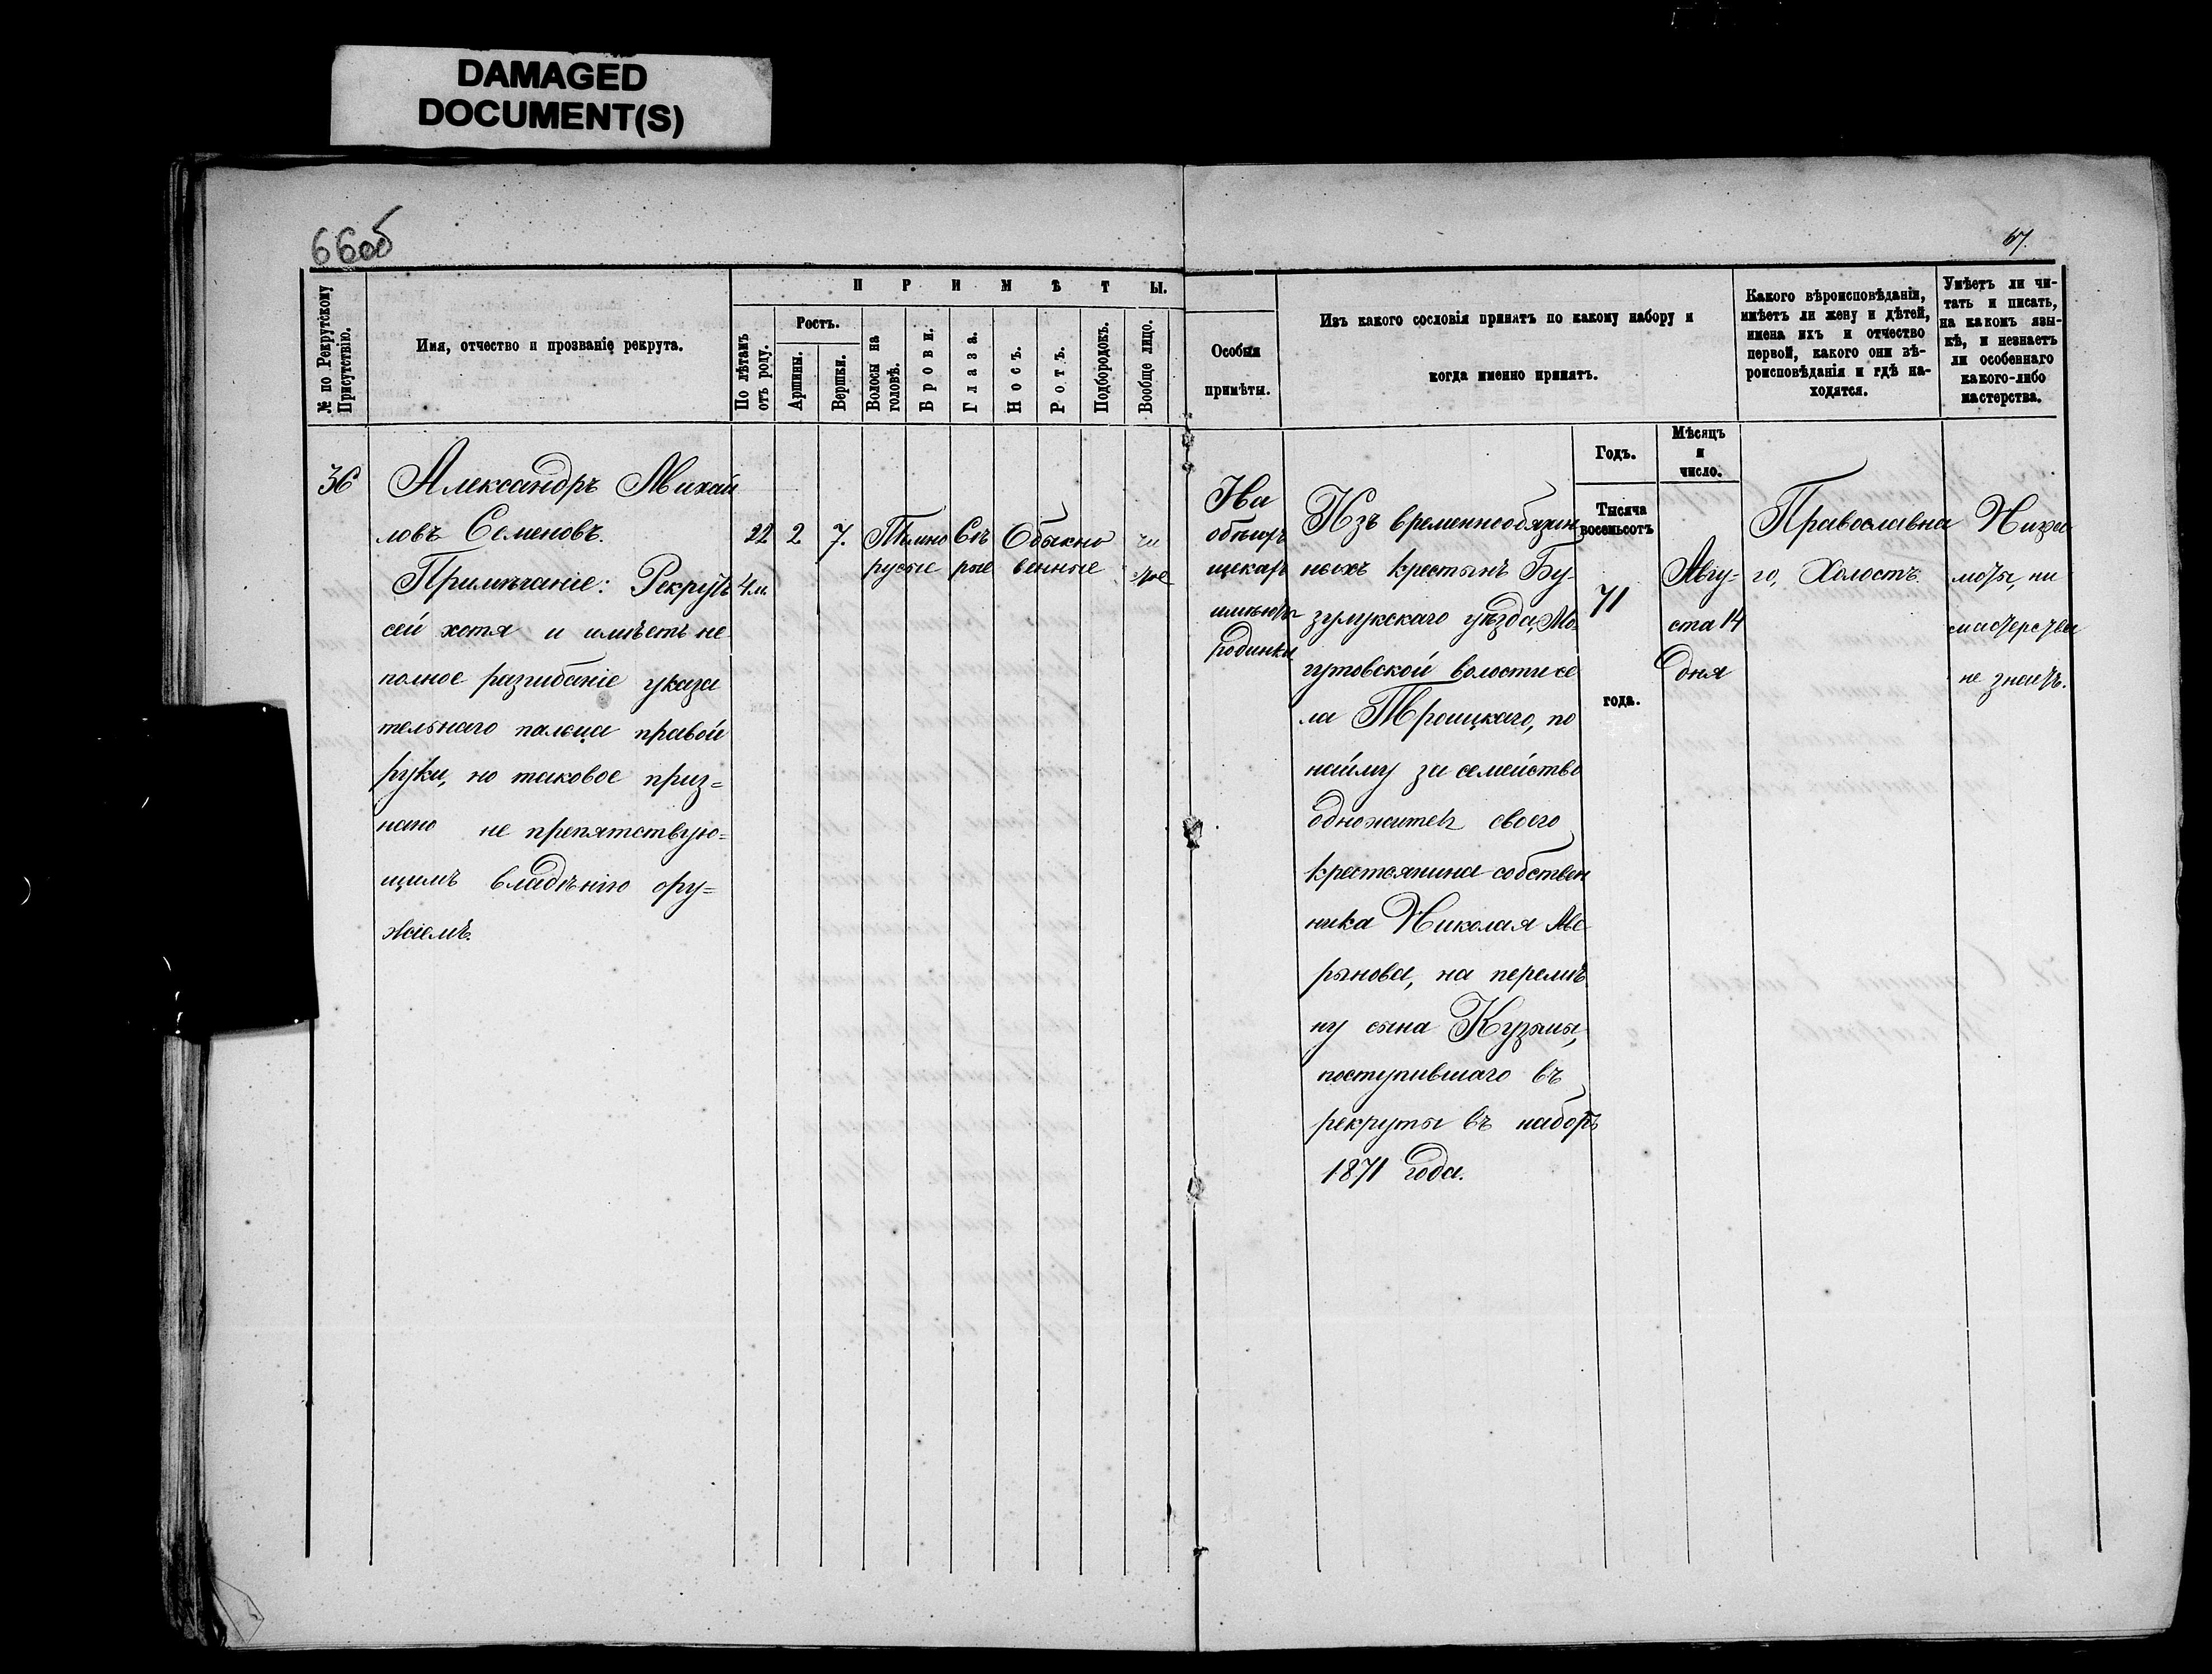 DAMAGED
DOCUMENT(S)
66об
67.
№ по Рекрутскому
Присутствію.
Имя, отчество и прозваніе рекрута.
ПРИМѢТЫ.
По лѣтамъ
отъ роду.
Ростъ.
Аршины.
Вершки.
Волосы на
головѣ.
Брови.
Глаза.
Носъ.
Ротъ.
Подбородокъ.
Вообще лицо.
Особыя
примѣты.
Изъ какого сословія принятъ по какому набору и
когда именно принятъ.
Какого вѣроисповѣданія,
имѣетъ ли жену и дѣтей,
имена ихъ и отчество
первой, какого они вѣ-
роисповѣданія и гдѣ на-
ходятся.
Умѣетъ ли чи-
тать и писать,
на какомъ язы-
кѣ, и незнаетъ
ли особеннаго
какого-либо
мастерства.
Годъ.
Мѣсяцъ
и
число.
36
Александръ Михай
ловъ Семеновъ.
Примѣчаніе: Рекрутъ
сей хотя и имѣетъ не-
полное разгибаніе указа
тельнаго пальца правой
руки, но таковое приз=
нано не препятствую=
щимъ владѣнію ору=
жіемъ.
22
4 м.
2
7.
Темно
русые
Сѣ
рые
Обыкно
венные
чи
стое
На
обѣихъ
щекахъ
имѣютъ
родинки
Изъ временнообязан
ныхъ крестьянъ Бу-
зулукскаго уѣзда, Мо-
гутовской волости се
ла Троицкаго, по
найму за семейство
одножител своего
крестьянина собствен
ника Николая Аве
рьянова, на перемѣ
ну сына Кузьмы,
поступившаго въ
рекруты въ наборъ
1871 года.
Тысяча
восемьсотъ
71
года.
Авгу-
ста 14
дня
Православна
го, Холостъ.
Низна
моты, ни
мастерства
не знаетъ.